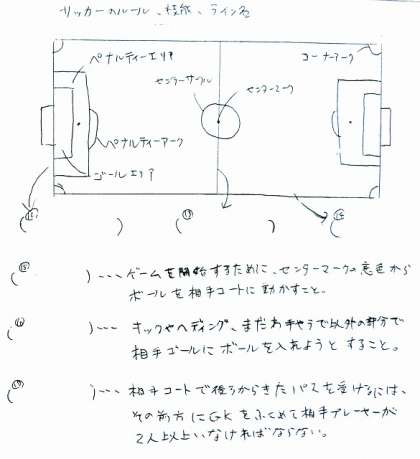 サッカーのルール、技能、ライン名
ペナルティーエリア
コーナーアーク
センターサークル
センターマーク
ペナルティーアーク
ゴールエリア
( ) ( ) (
( )‥‥ゲームを開始するために、センターマークの意色から
ボールを相手コートに動かすこと。
( )‥‥キックやヘディング、またわ手やうで以外の部分で
相手ゴールにボールを入れようとすること。
( )‥‥相手コートで後ろからきたパスを受けるには、
その前方にGKをふくめて相手プレーヤーが
2人以上いなければならない。